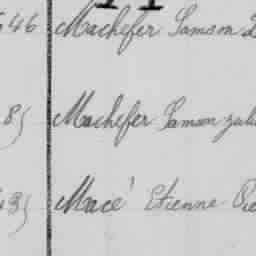 46 Machefer Samson
85 Machefer Samson
35 Macé Etienne